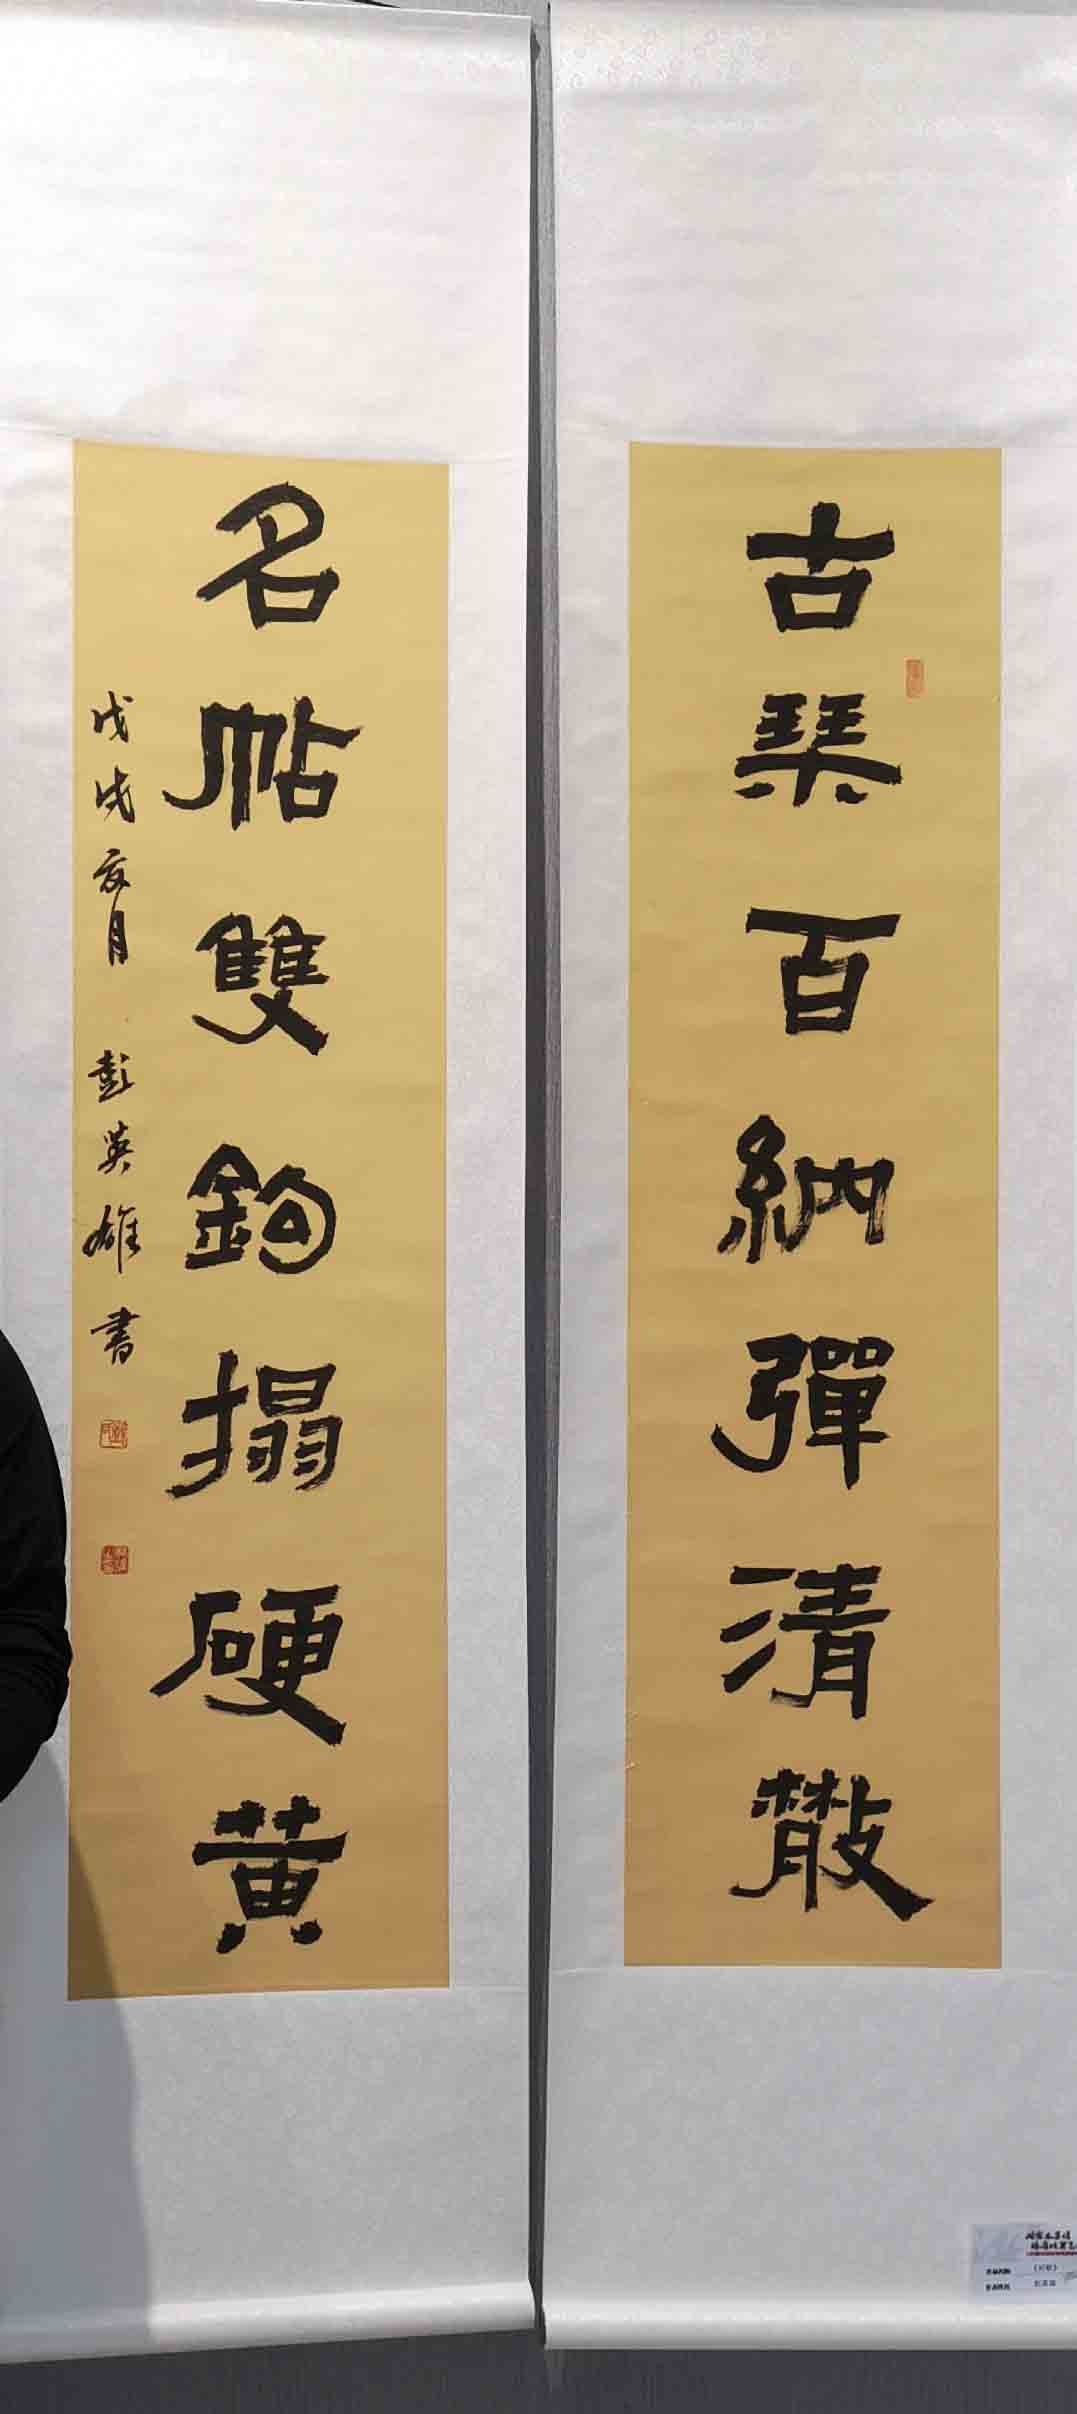 古琴百納彈清散
名帖雙鉤搨硬黃
戊戌亥月 彭英雄書